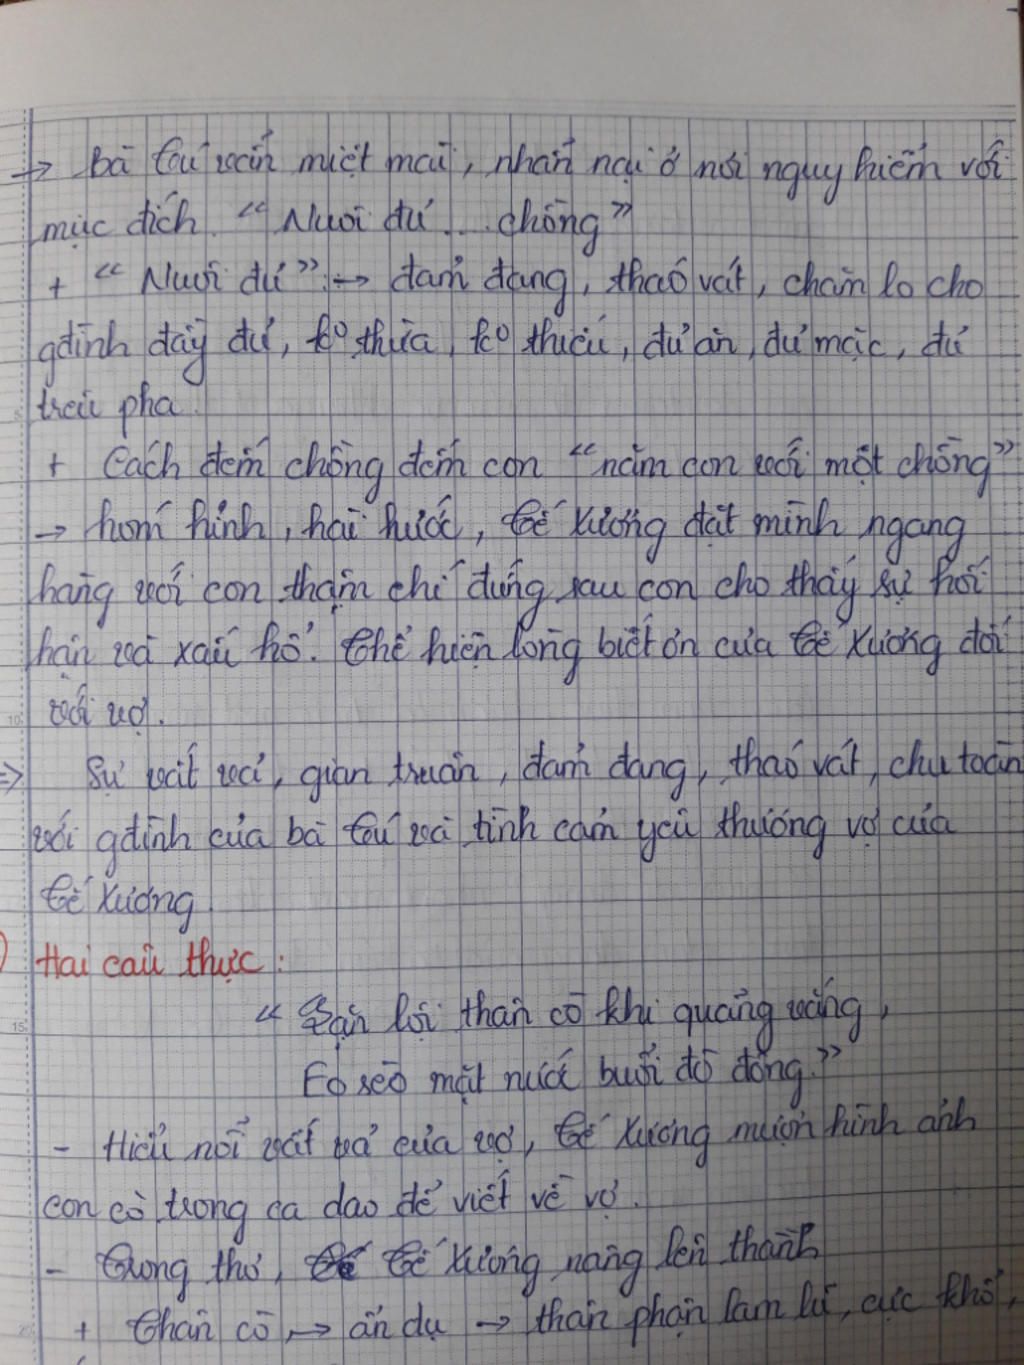 → bà Tú vẫn miệt mài, nhẫn nại ở nơi nguy hiểm với
mục đích "Nuôi đủ... chồng"
+ "Nuôi đủ" → đảm đang, tháo vát, chăm lo cho
gđình đầy đủ, ko thừa, ko thiếu, đủ ăn, đủ mặc, đủ
trều pha.
+ Cách đếm chồng đếm con "năm con với một chồng"
→ hóm hỉnh, hài hước, Tế Xương đặt mình ngang
hàng với con thậm chí đứng sau con cho thấy sự hối
hận và xấu hổ. Thể hiện lòng biết ơn của Tế Xương đối
với vợ.
=> Sự vất vả, gian truân, đảm đang, tháo vát, chu toàn
với gđình của bà Tú và tình cảm yêu thương vợ của
Tế Xương
) Hai câu thực:
"Lặn lội thân cò khi quãng vắng,
Eo sèo mặt nước buổi đò đông."
- Hiểu nỗi vất vả của vợ, Tế Xương mượn hình ảnh
con cò trong ca dao để viết về vợ.
- Trong thơ, Tế Xương nâng lên thành
+ Thân cò → ẩn dụ → thân phận lam lũ, cực khổ,